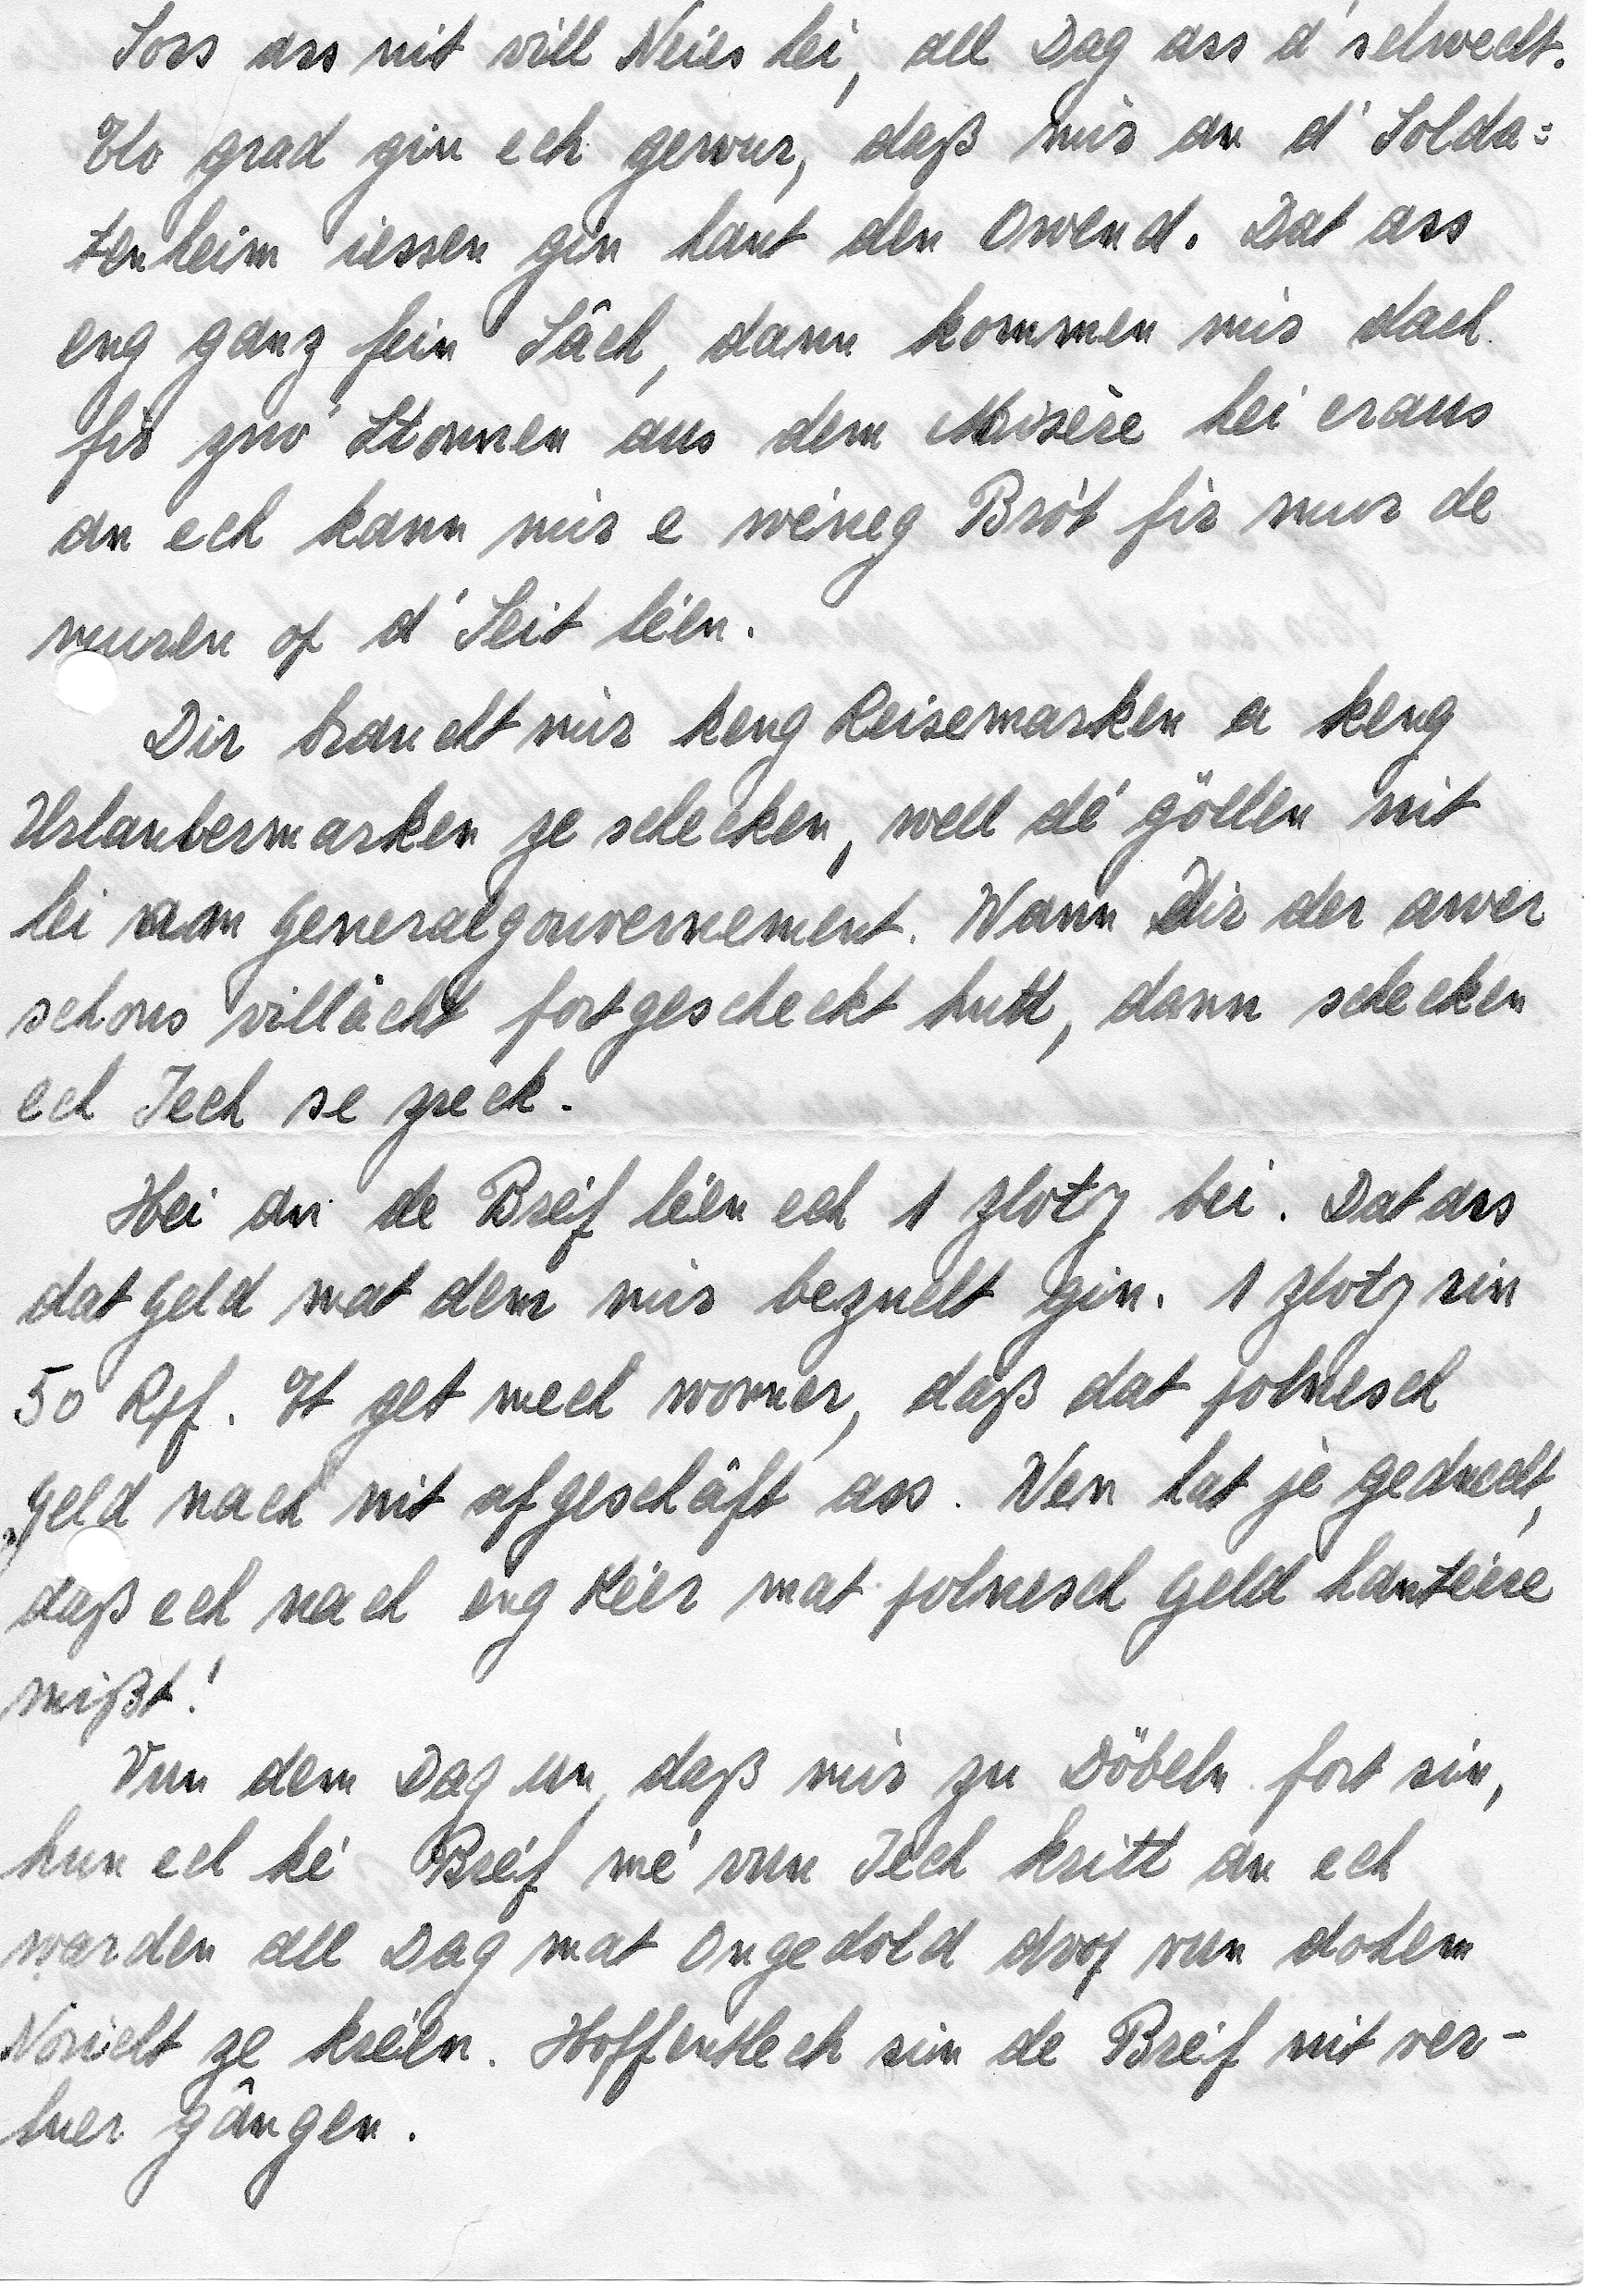 Soss ass nit vill Neies hei, all Dag ass d'selwecht.
Elo grad gin ech gewuer, daß mir an d'Solda=
tenheim iessen gin haut den Owend. Dat ass
eng ganz fein Sâch, dann kommen mir dach
fir zwó Stonnen aus dem Misère hei eraus
an ech kann mir e wéneg Brót fir mur de
muren of d'Seit léen.
Dir braucht mir keng Reisemarken a keng
Urlaubermarken ze schecken, well dé göllen nit
hei am Generalgouvernement. Wann Dir der awer
schons villächt fortgescheckt hutt, dann schecken
ech Iech se zreck.
Hei an de Bréif léen ech 1 Zloty bei. Dat ass
dat Geld mat dem mir bezuelt gin. 1 Zloty sin
50 Rpf. Et get mech wonner, daß dat polnesch
Geld nach nit afgeschâft ass. Wen hat jé geduecht,
daß ech nach eng Kéier mat polnesch Geld hantéiere
mißt!
Vun dem Dag un, daß mir zu Döbeln fort sin,
hun ech ké Bréif mé vun Iech kritt an ech
warden all Dag mat Ongedold drop vun dohem
Noriicht ze kréien. Hoffentlech sin de Bréif nit ver-
luer gângen.